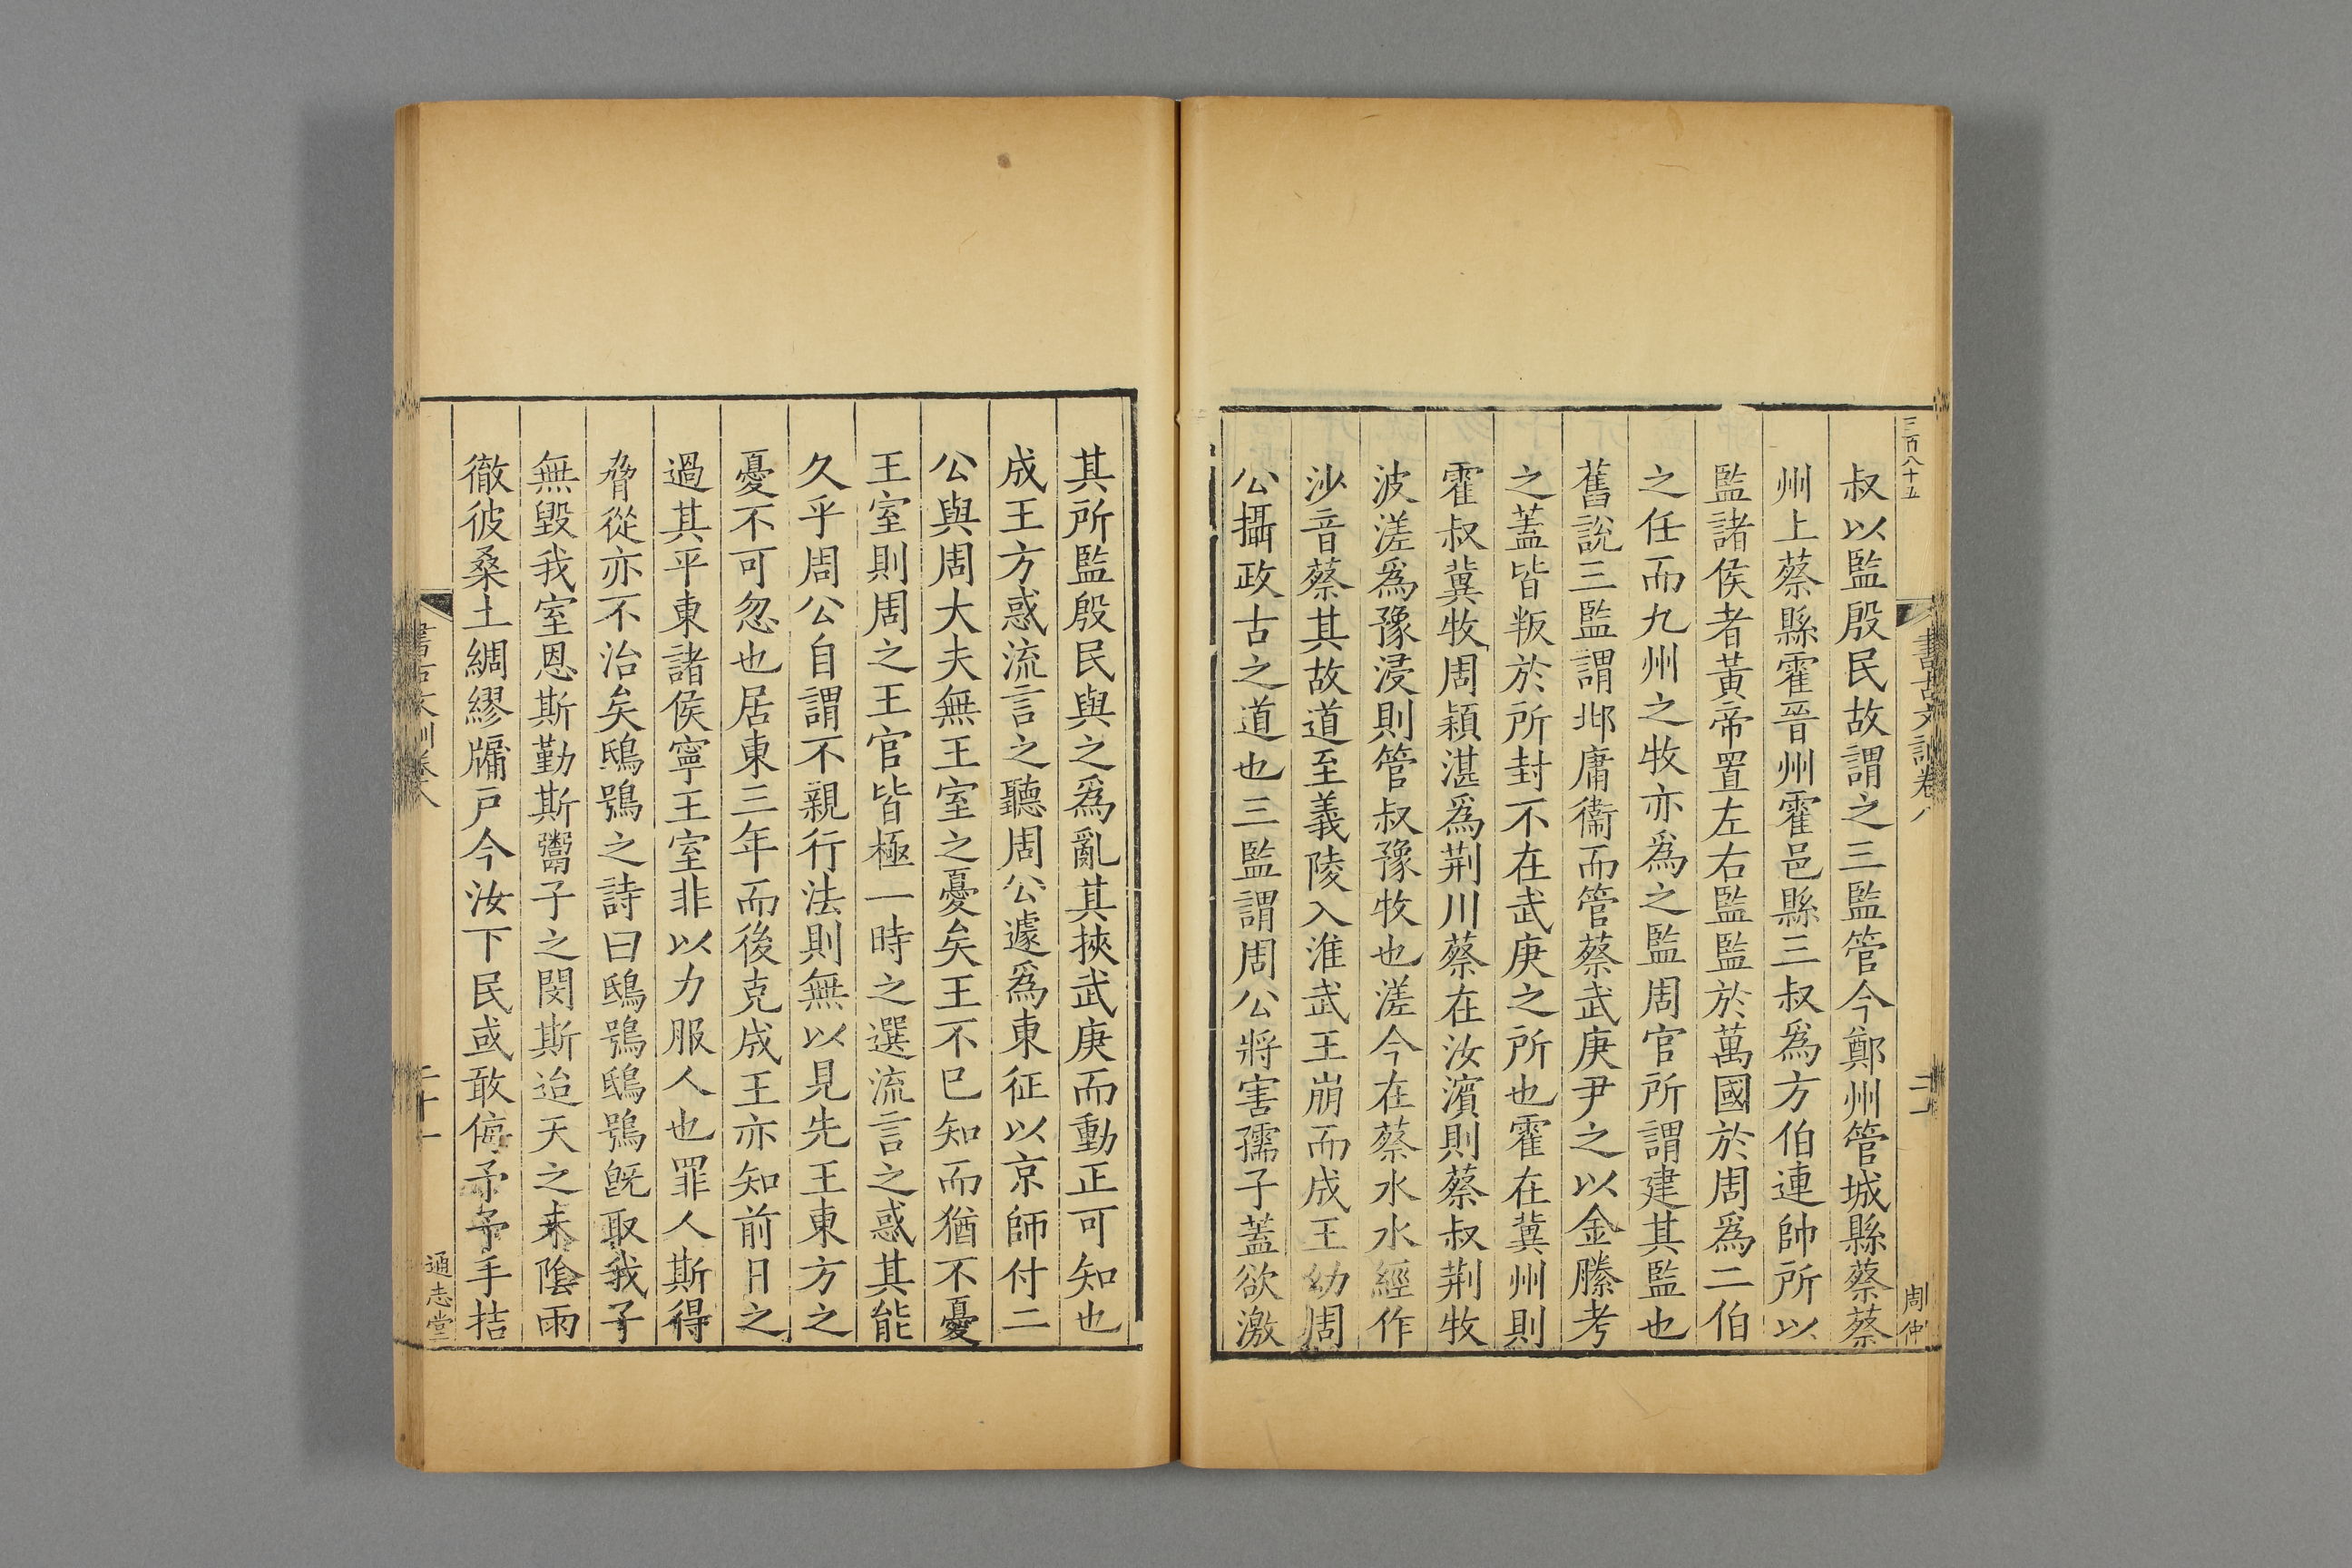 三百八十五
書古文訓卷八
周仲
叔以監殷民故謂之三監管今鄭州管城縣蔡蔡
州上蔡縣霍晉州霍邑縣三叔爲方伯連帥所以
監諸侯者黃帝置左右監監於萬國於周爲二伯
之任而九州之牧亦爲之監周官所謂建其監也
舊說三監謂邶庸衞而管蔡武庚尹之以金縢考
之蓋皆叛於所封不在武庚之所也霍在冀州則
霍叔冀牧周潁湛爲荆川蔡在汝濱則蔡叔荆牧
波溠爲豫浸則管叔豫牧也溠今在蔡水水經作
沙音蔡其故道至義陵入淮武王崩而成王幼周
公攝政古之道也三監謂周公將害孺子蓋欲激
其所監殷民與之爲亂其挾武庚而動正可知也
成王方惑流言之聽周公遽爲東征以京師付二
公與周大夫無王室之憂矣王不巳知而猶不憂
王室則周之王官皆極一時之選流言之惑其能
久乎周公自謂不親行法則無以見先王東方之
憂不可忽也居東三年而後克成王亦知前日之
過其平東諸侯寧王室非以力服人也罪人斯得
脅從亦不治矣鴟鴞之詩曰鴟鴞鴟鴞旣取我子
無毀我室恩斯勤斯鬻子之閔斯迨天之未隂雨
徹彼桑土綢繆牖戸今汝下民或敢侮予予手拮
書古文訓卷八
二十一
通志堂